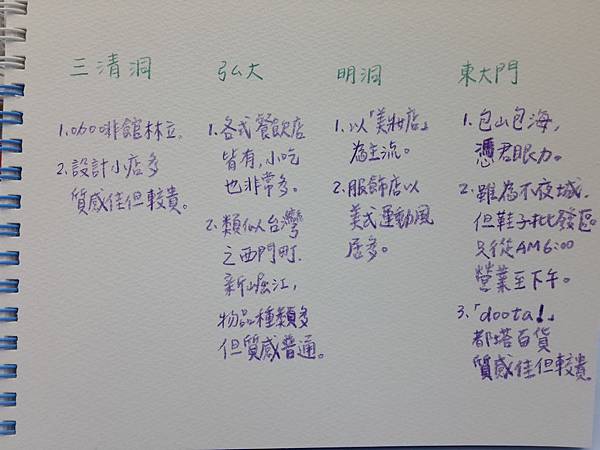 三清洞
1.咖啡館林立。
2.設計小店多
質感佳但較貴。
弘大
1.各式餐飲店
皆有,小吃
也非常多。
2.類似台灣
之西門町.
新崛江,
物品種類多
但質感普通。
明洞
1.以「美妝店」
為主流。
2.服飾店以
美式運動風
居多。
東大門
1.包山包海,
憑君眼力。
2.雖為不夜城.
但鞋子批發區。
只從AM6:00
營業至下午。
3.「doota!」
都塔百貨
質感佳但較貴。